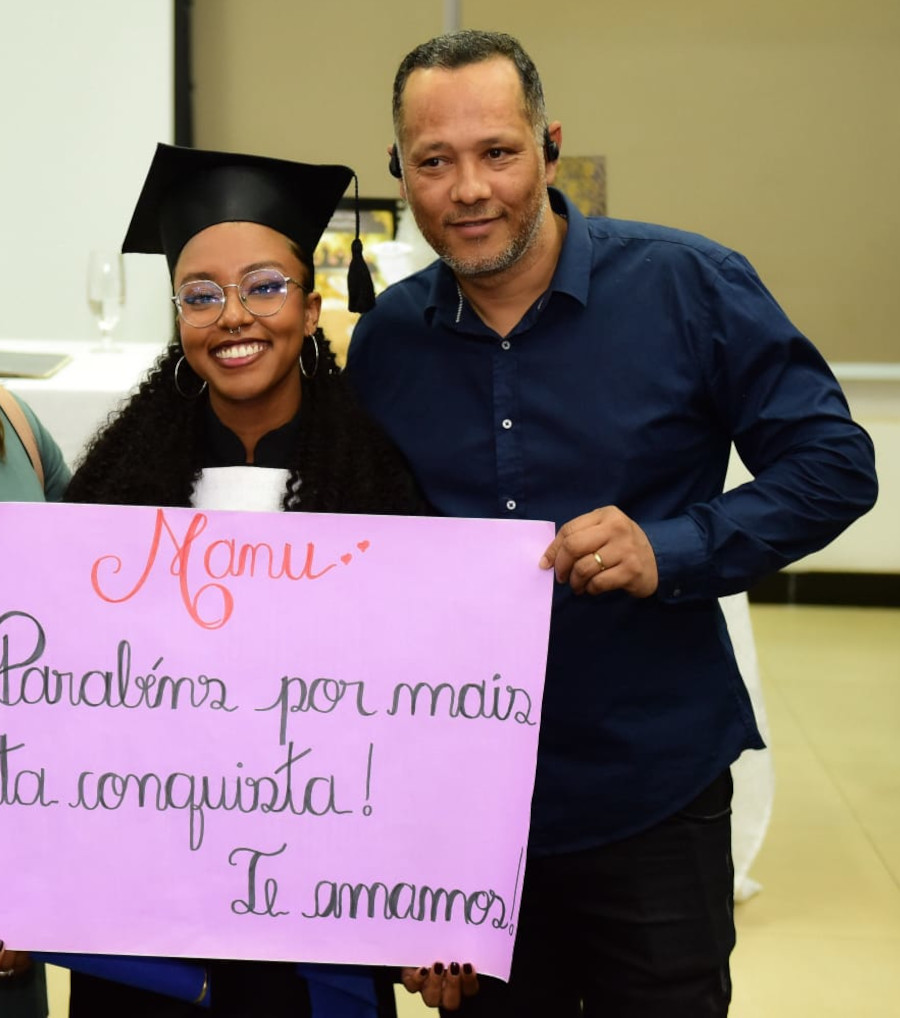 Manu
Parabéns por mais
ta conquista!
Te amamos!